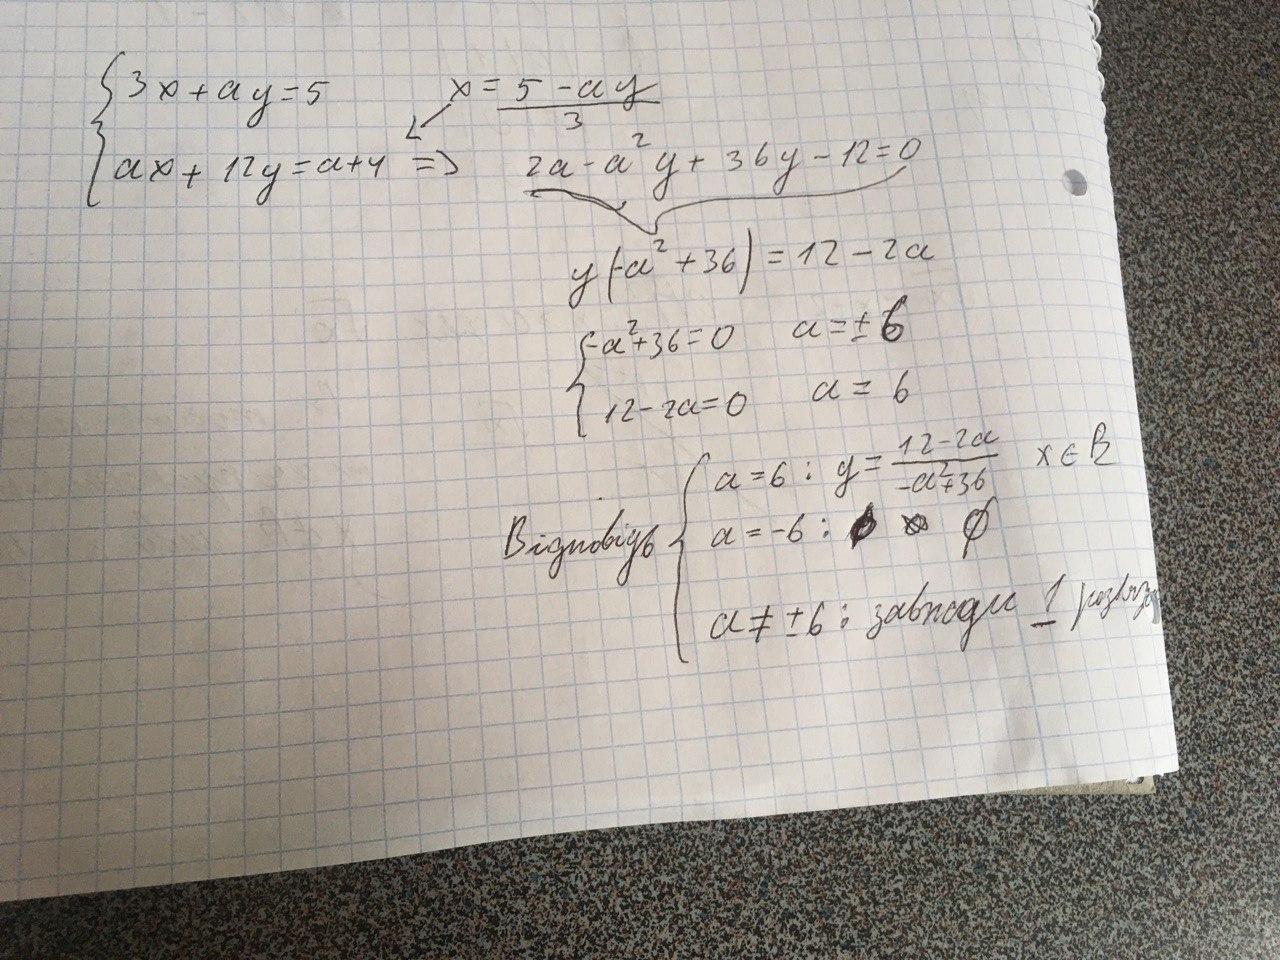 3x+ay=5
x=5-ay/3
ax+12y=a+4 =>
2a-a²y+36y-12=0
y(-a²+36)=12-2a
-a²+36=0 a=±6
12-2a=0 a=6
Відповідь
a=6: y=12-2a/-a²+36 x∈R
a=-6: ∅
a≠±6: завжди 1